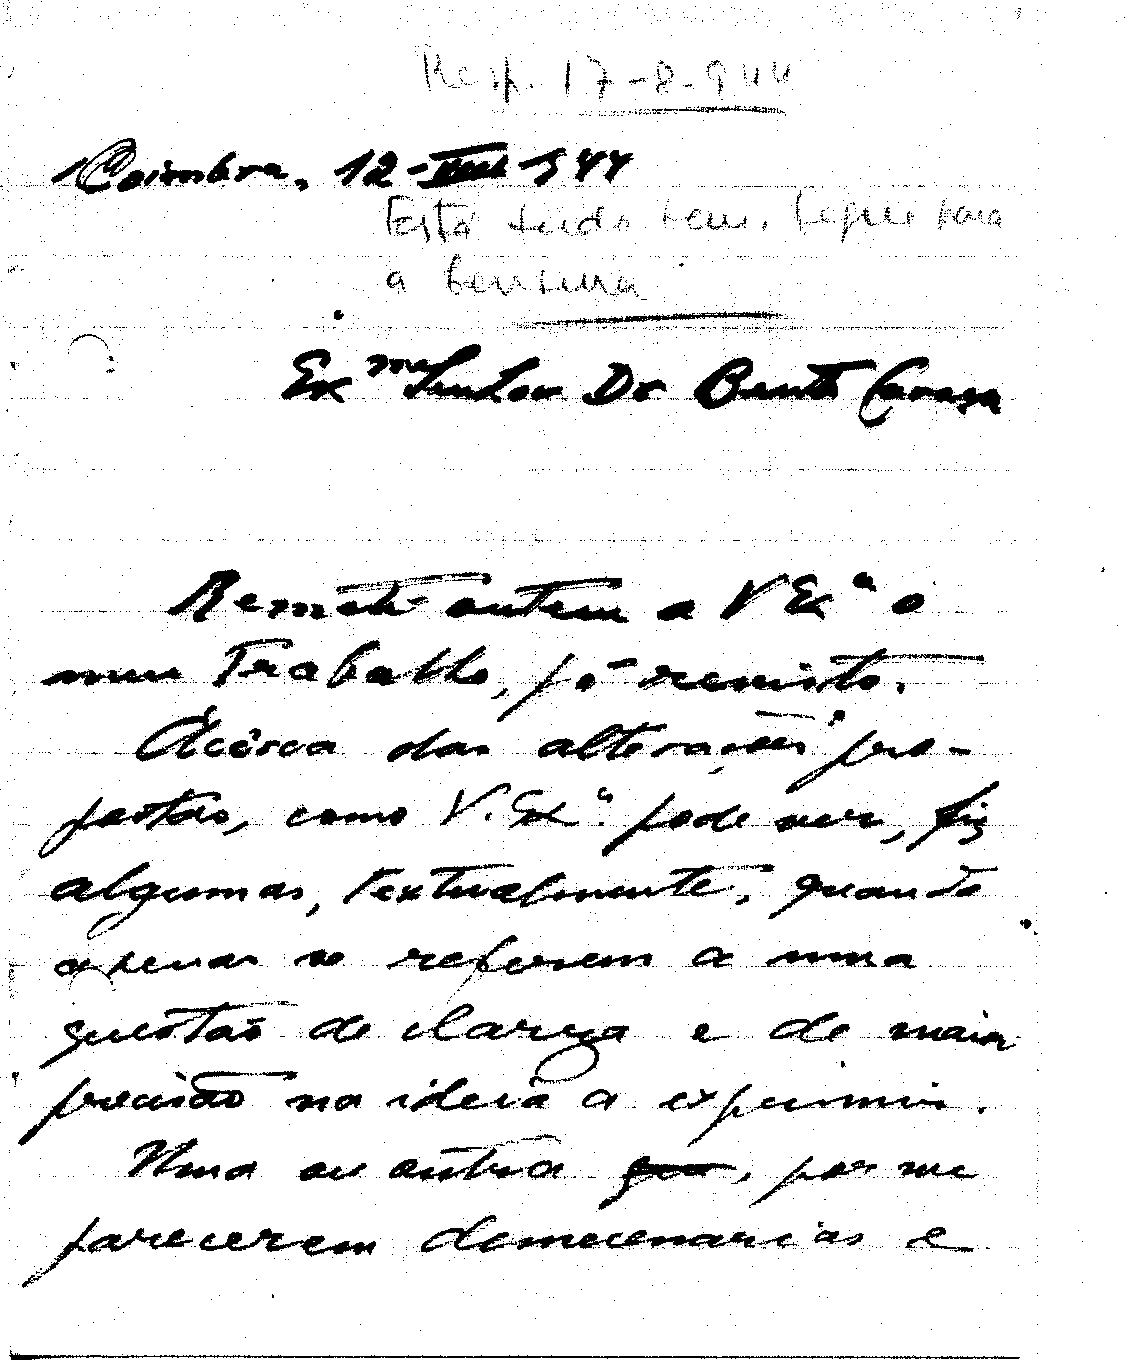 Resp. 17-8-944
Coimbra, 12-VIII-944
Está tudo bem. Segue para
a censura
Exmo Senhor Dr Bento Caraça
Remeti ontem a V Exª o
meu trabalho, já revisto.
Àcêrca das alterações pro-
postas, como V. Exª. pode ver, fiz
algumas, textualmente, quando
apenas se referem a uma
questão de clareza e de maior
precisão na ideia a exprimir.
Uma ou outra, por me
parecerem desnecessárias e